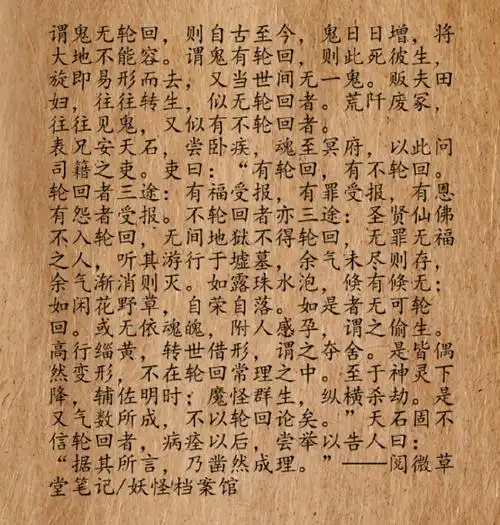 谓鬼无轮回，则自古至今，鬼日日增，将
大地不能容。谓鬼有轮回，则此死彼生，
旋即易形而去，又当世间无一鬼。贩夫田
妇，往往转生，似无轮回者。荒阡废冢，
往往见鬼，又似有不轮回者。
表兄安天石，尝卧疾，魂至冥府，以此问
司籍之吏。吏曰：“有轮回，有不轮回。
轮回者三途：有福受报，有罪受报，有恩
有怨者受报。不轮回者亦三途：圣贤仙佛
不入轮回，无间地狱不得轮回，无罪无福
之人，听其游行于墟墓，余气未尽则存，
余气渐消则灭。如露珠水泡，倏有倏无；
如闲花野草，自荣自落。如是者无可轮
回。或无依魂魄，附人感孕，谓之偷生。
高行缁黄，转世借形，谓之夺舍。是皆偶
然变形，不在轮回常理之中。至于神灵下
降，辅佐明时；魔怪群生，纵横杀劫。是
又气数所成，不以轮回论矣。”天石固不
信轮回者，病痊以后，尝举以告人曰：
“据其所言，乃凿然成理。”——阅微草
堂笔记/妖怪档案馆